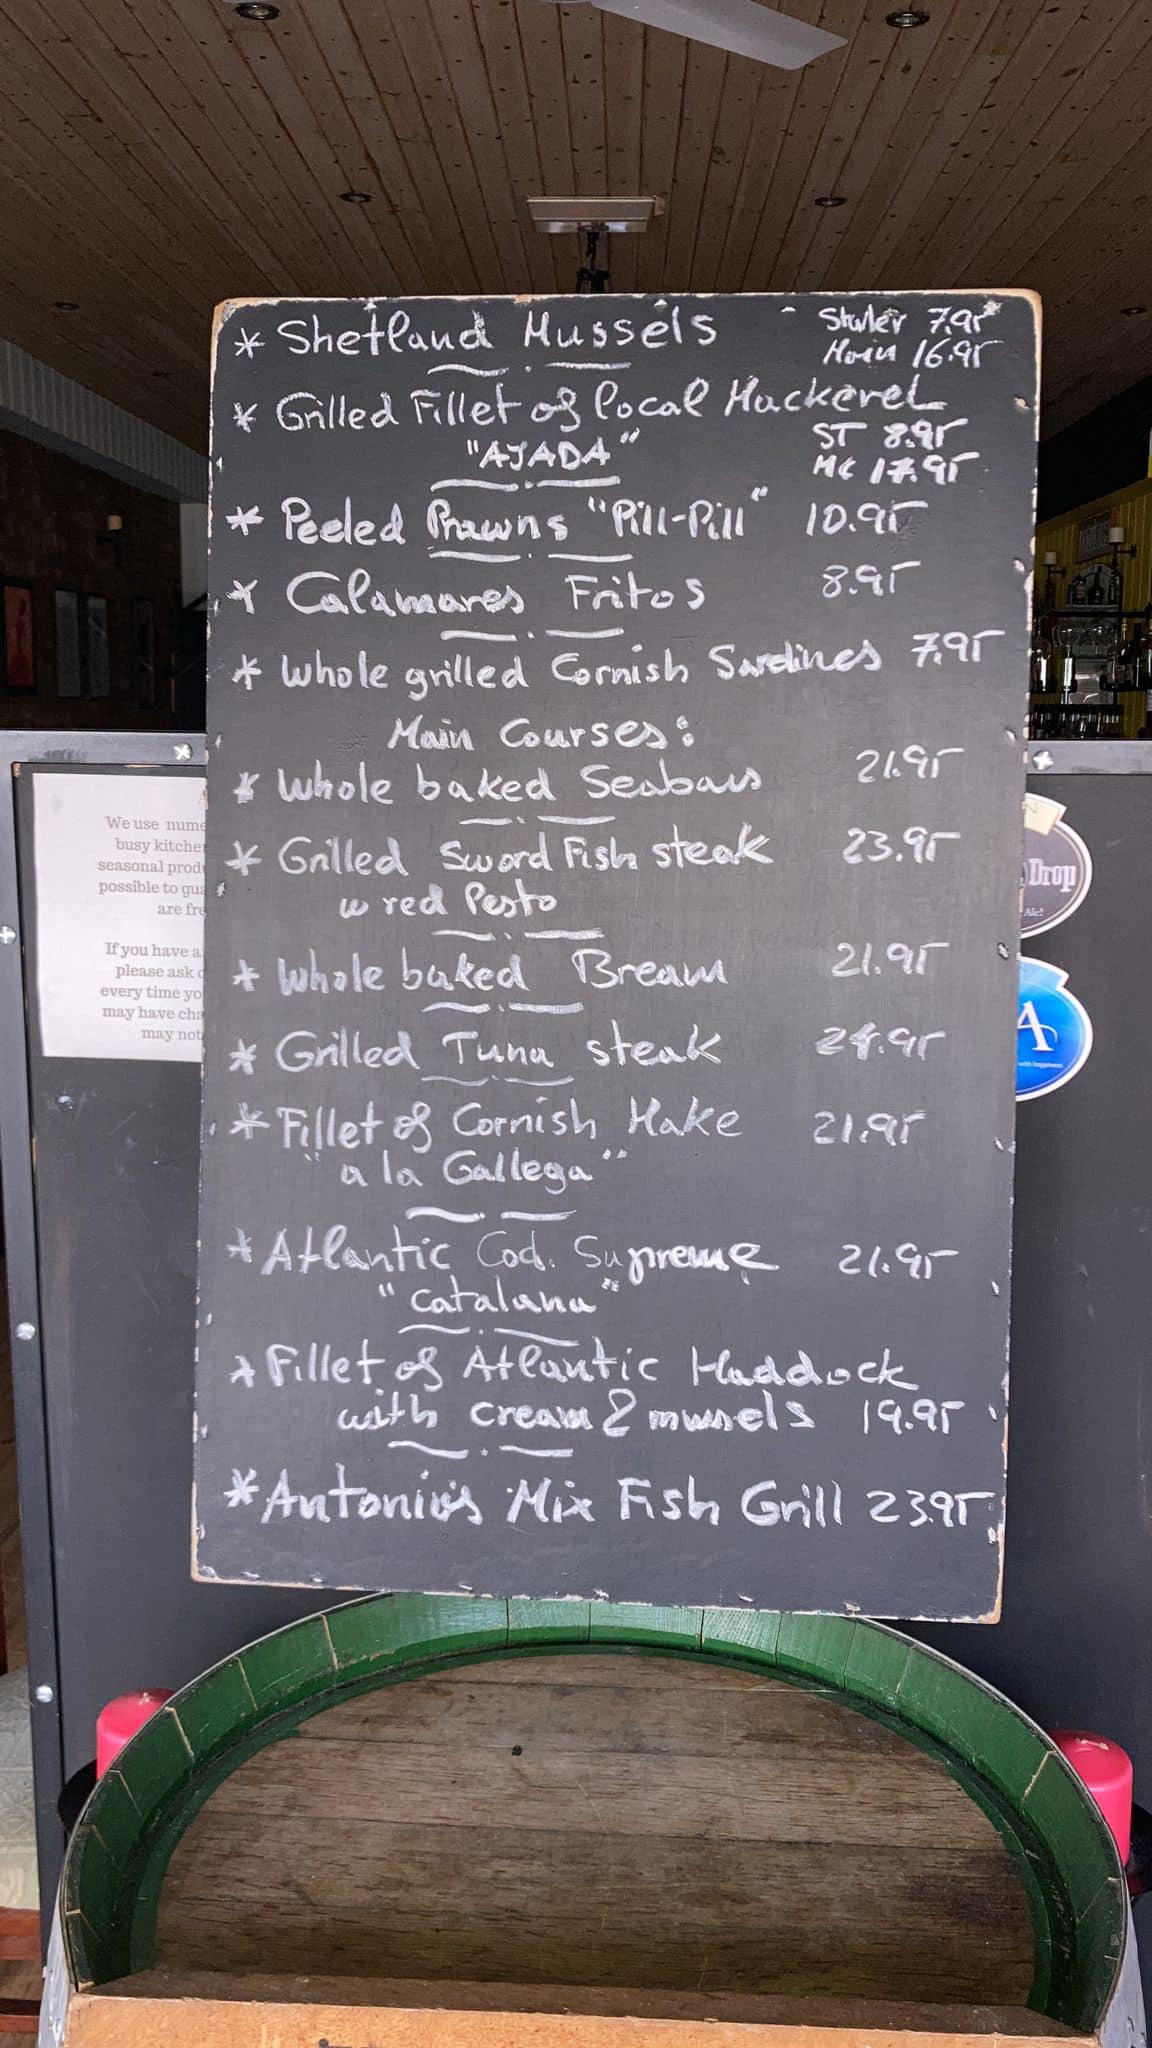 * Shetland Mussels - Starter 7.95
Main 16.95
* Grilled Fillet of local Mackerel
"AJADA" ST 8.95
MC 17.95
* Peeled Prawns "Pill-Pill" 10.95
* Calamares Fritos 8.95
* Whole grilled Cornish Sardines 7.95
Main Courses:
* Whole baked Seabass 21.95
* Grilled Sword Fish steak 23.95
w red Pesto
* Whole baked Bream 21.95
* Grilled Tuna steak 24.95
* Fillet of Cornish Hake 21.95
"a la Gallega"
* Atlantic Cod. Supreme 21.95
"Catalana"
* Fillet of Atlantic Haddock
with cream & mussels 19.95
* Antonio's Mix Fish Grill 23.95
We use nume
busy kitche
seasonal prod
possible to gua
are fre
If you have a
please ask
every time yo
may have cha
may not
Drop
Ale!
A